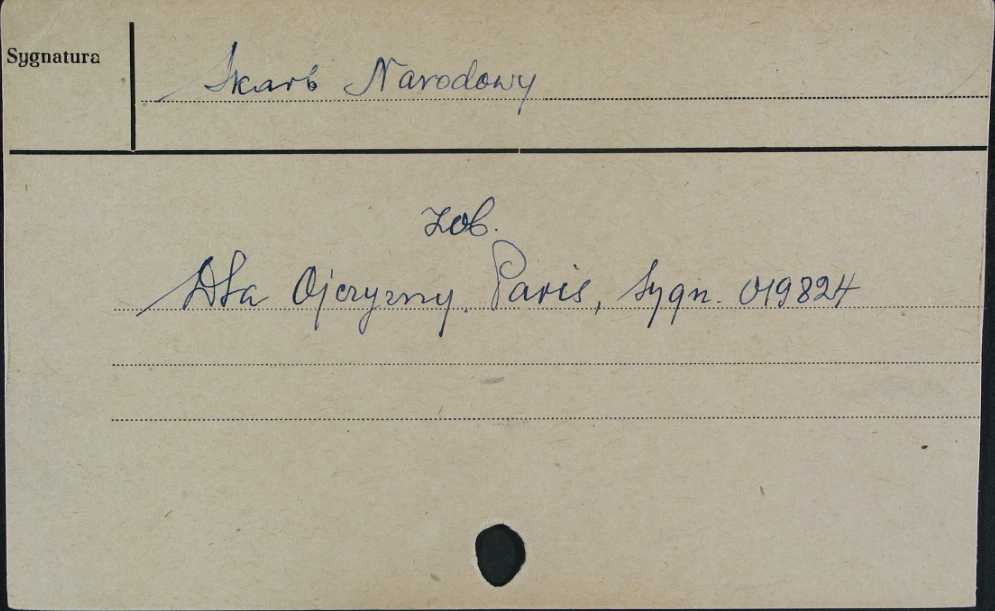 Sygnatura
Skarb Narodowy
zob.
Dla Ojczyzny. Paris, Sygn. 019824